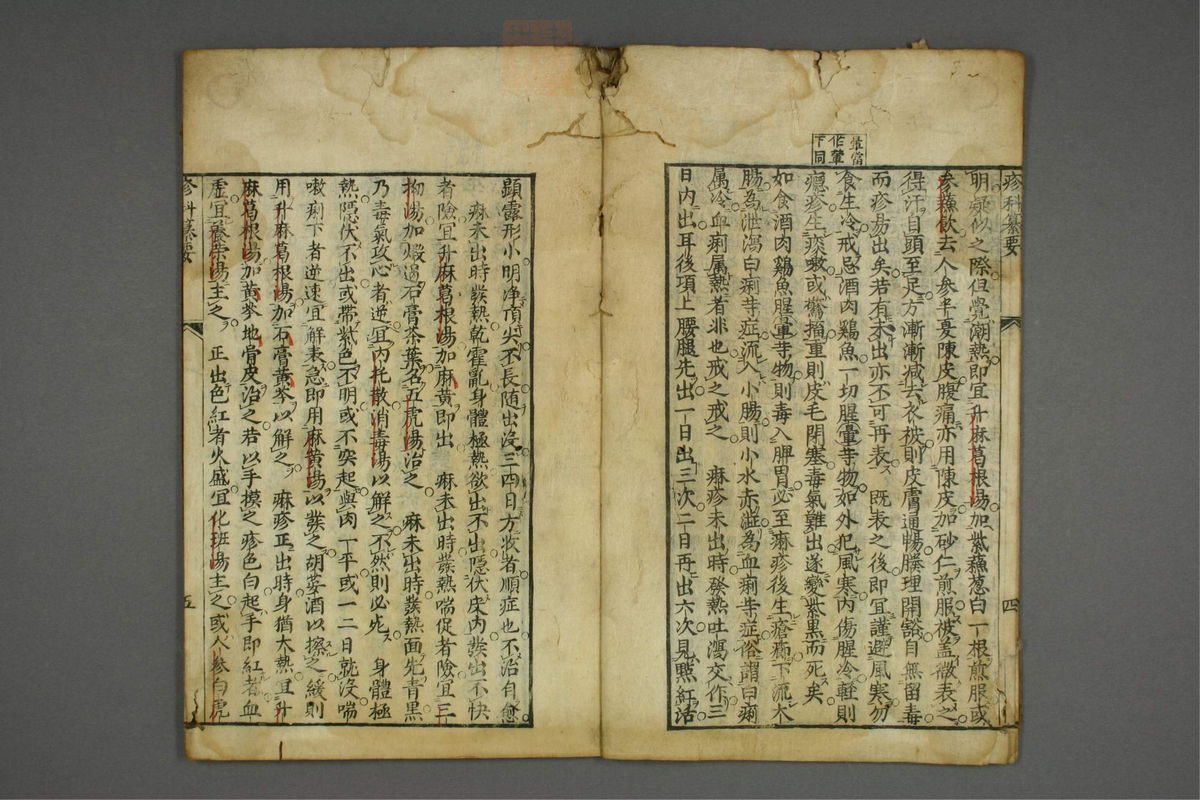 疹科纂要
四
葷當
作葷
下同
明疑似之際但覺潮熱即宜升麻葛根湯加紫蘓葱白一根煎服或
参蘓飲去人参半夏陳皮腹痛亦用陳皮加砂仁煎服被盖微表之
得汗自頭至足方漸漸减去衣被則皮膚通暢腠理開豁自無留毒
而疹易出矣若有未出亦不可再表既表之後即宜謹避風寒勿
食生冷戒忌酒肉鷄魚一切腥葷等物如外犯風寒内傷腥冷輕則
癮疹生痰嗽或驚搐重則皮毛閉塞毒氣難出遂變紫黒而死矣
如食酒肉鷄魚腥葷等物則毒入脾胃必至麻疹後生瘡痂下流大
腸為泄瀉白痢等症流入小腸則小水赤澁為血痢等症俗謂白痢
属冷血痢属熱者非也戒之戒之 麻疹未出時發熱吐瀉交作三
日内出耳後項上腰腿先出一日出三次二日再出六次見㸃紅活
顕露形小明浄頂尖不長随出没三四日方收者順症也不治自愈
麻未出時發熱乾霍亂身體極熱欲出不出隠伏床内發出不快
者險宜升麻葛根湯加麻黄即出 麻未出時發熱喘促者險宜三
拗湯加煅過石膏茶葉名五虎湯治之 麻未出時發熱面先青黒
乃毒氣攻心者逆宜内托散消毒湯以解之不然則必死 身體極
熱隠伏不出或帶紫色不明或不突起與肉一平或一二日就没喘
嗽痢下者逆速宜解表急即用麻黄湯以發之胡荽酒以擦之緩則
用升麻葛根湯加石膏黄芩以解之 麻疹正出時身猶大熱宜升
麻葛根湯加黄芩地骨皮治之若以手摸之疹色白起手即紅者血
虚宜養榮湯主之 正出色紅者火盛宜化斑湯主之或人参白虎
疹科纂要
五